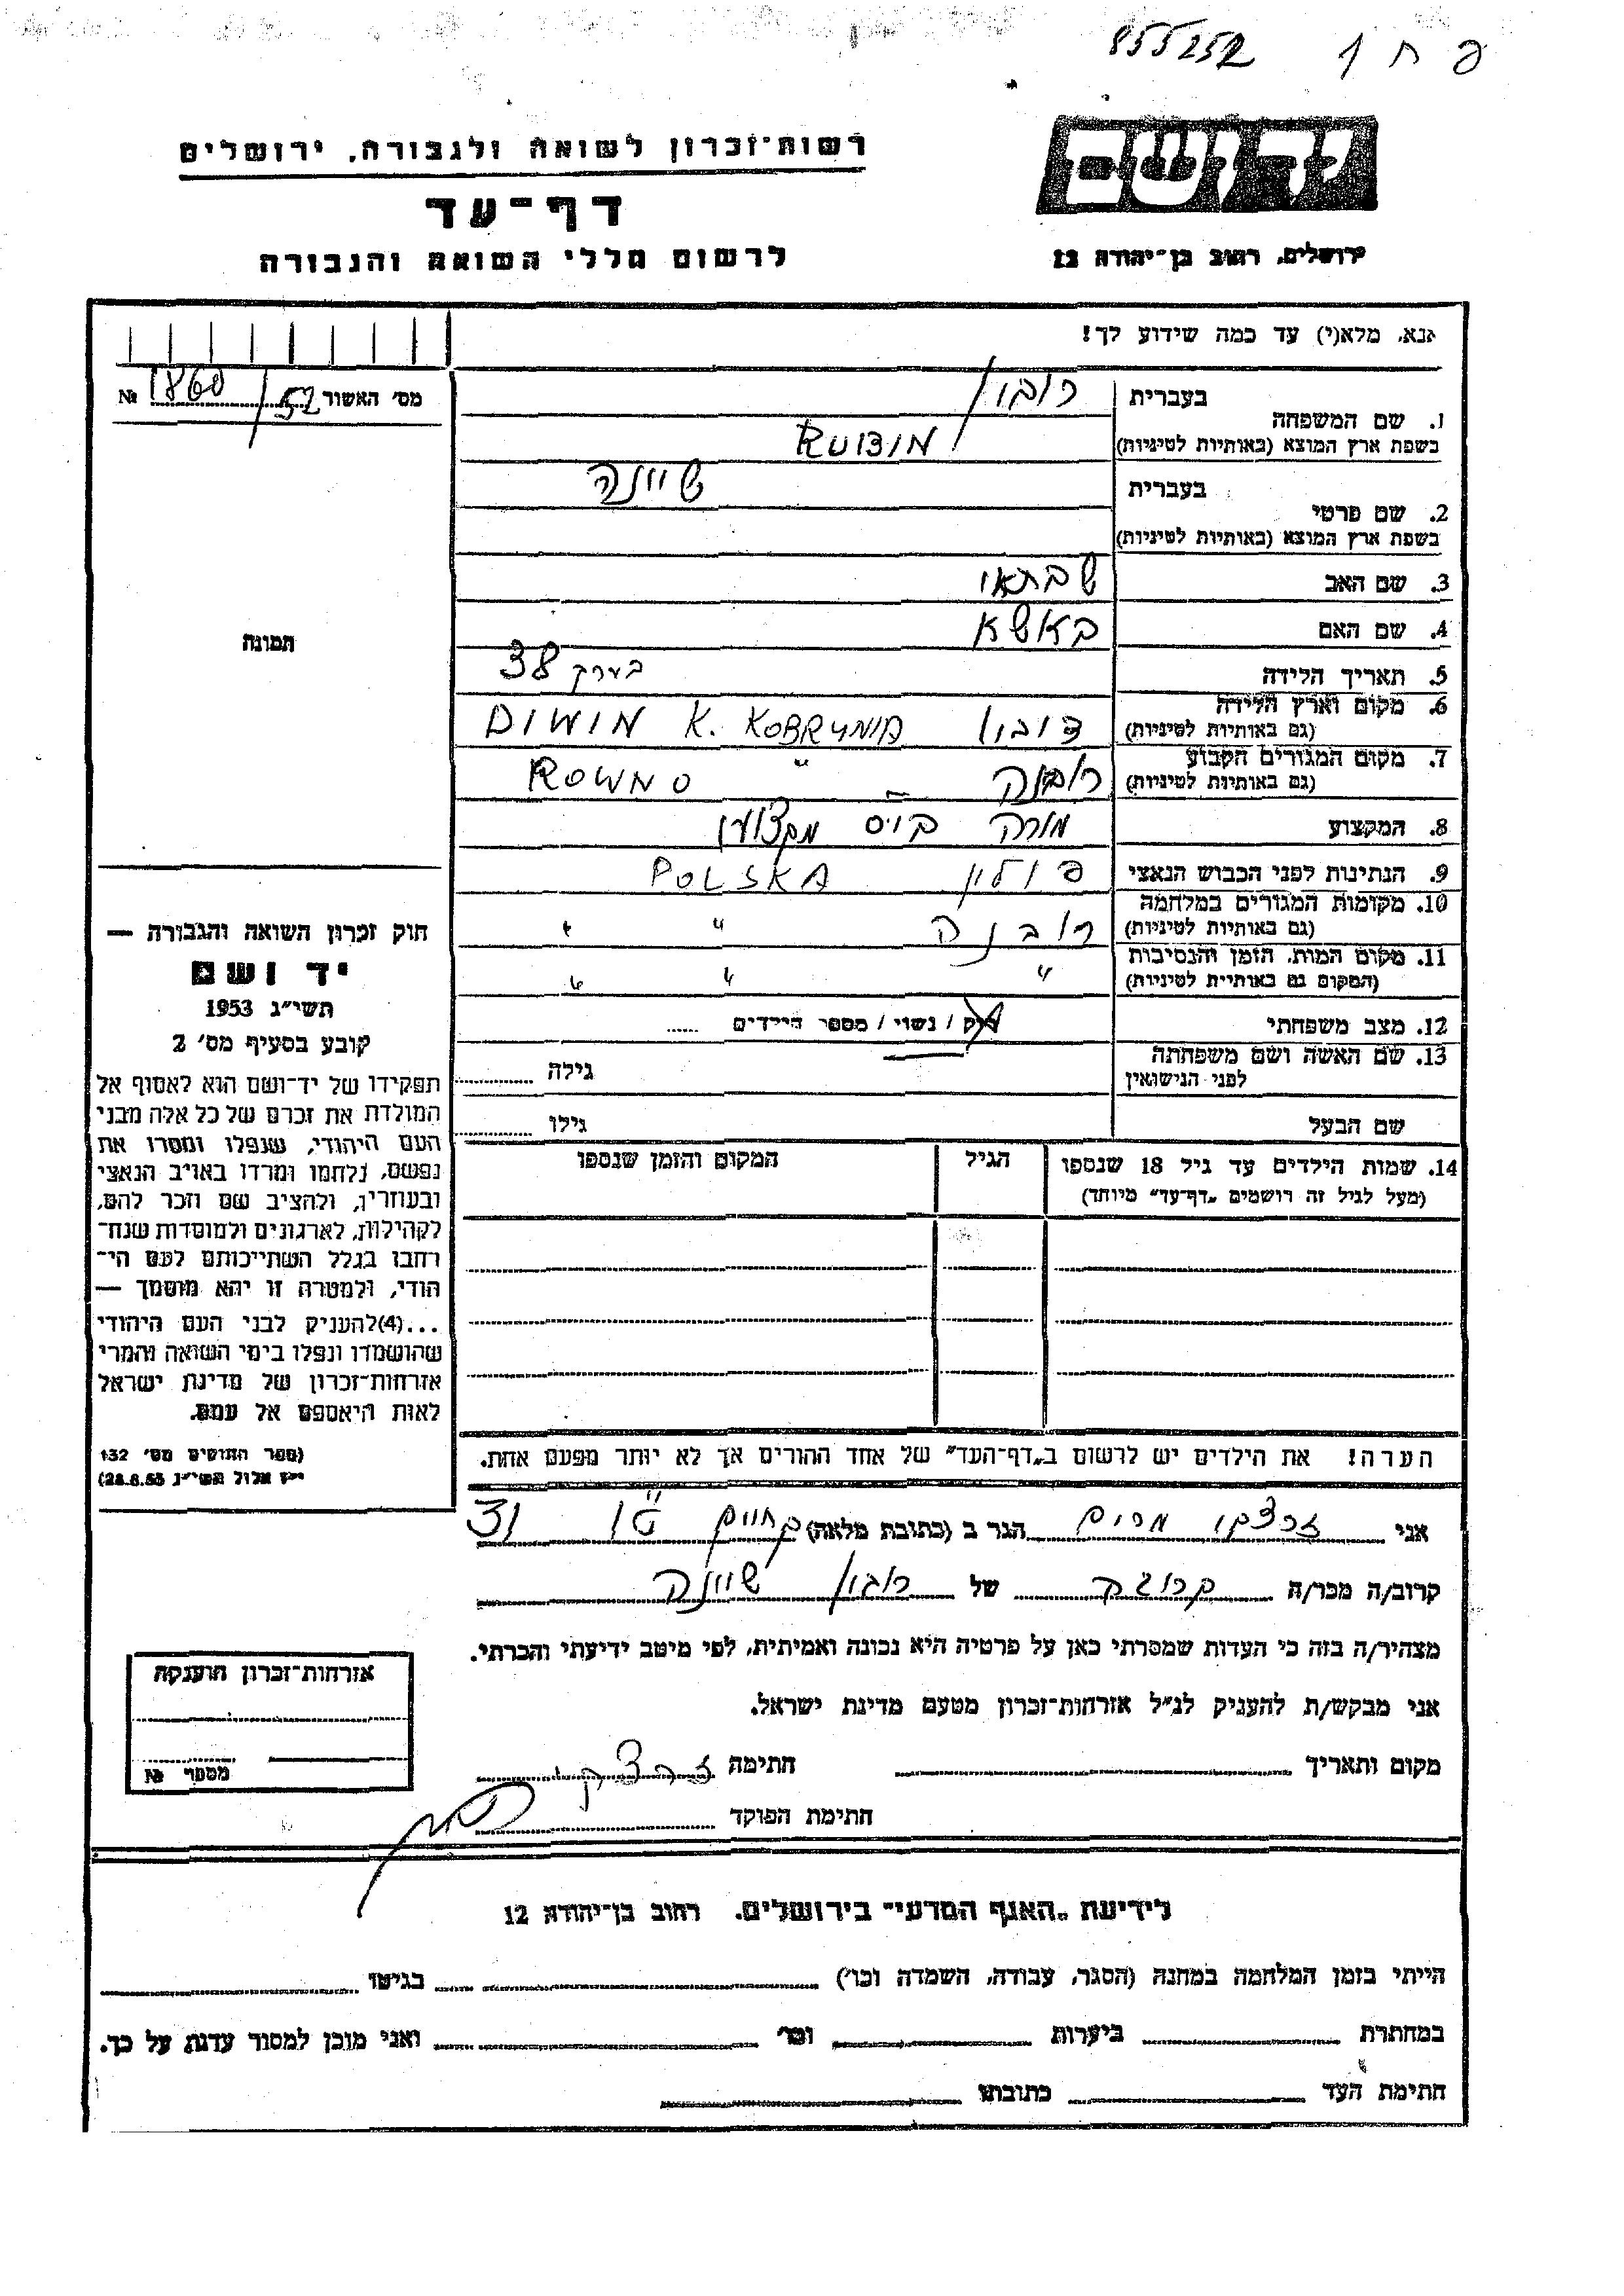 855252 פ ח 1
יד ושם
רשות־זכרון לשואה ולגבורה, ירושלים
דף־עד
לרשום חללי השואה והגבורה
ירושלים, רחוב בן־יהודה 12
אנא, מלא(י) עד כמה שידוע לך!
מס' האשור 1860/52 №
1. שם המשפחה
בעברית רובין
בשפת ארץ המוצא (באותיות לטיניות) RUBIN
2. שם פרטי
בעברית שיינה
בשפת ארץ המוצא (באותיות לטיניות)
3. שם האב שבתאי
4. שם האם באשא
5. תאריך הלידה בערך 38
6. מקום וארץ הלידה
(גם באותיות לטיניות) דיבין DIWIN K. KOBRYNIA
7. מקום המגורים הקבוע
(גם באותיות לטיניות) רובנה – " ROWNO
8. המקצוע מורה
9. הנתינות לפני הכבוש הנאצי פולין POLSKA
10. מקומות המגורים במלחמה
(גם באותיות לטיניות) רובנה " "
11. מקום המות, הזמן והנסיבות
(המקום גם באותיות לטיניות) " " "
12. מצב משפחתי רוק / נשוי / מספר הילדים .....
13. שם האשה ושם משפחתה
לפני הנישואין גילה
שם הבעל גילו
14. שמות הילדים עד גיל 18 שנספו
(מעל לגיל זה רושמים „דף־עד" מיוחד)
הגיל
המקום והזמן שנספו
הערה! את הילדים יש לרשום ב„דף־העד" של אחד ההורים אך לא יותר מפעם אחת.
תמונה
חוק זכרון השואה והגבורה —
יד ושם
תשי"ג 1953
קובע בסעיף מס' 2
תפקידו של יד־ושם הוא לאסוף אל
המולדת את זכרם של כל אלה מבני
העם היהודי, שנפלו ומסרו את
נפשם, נלחמו ומרדו באויב הנאצי
ובעוזריו, ולהציב שם וזכר להם,
לקהילות, לארגונים ולמוסדות שנח־
רבו בגלל השתייכותם לעם הי־
הודי, ולמטרה זו יהא מוסמך —
...(4)להעניק לבני העם היהודי
שהושמדו ונפלו בימי השואה והמרי
אזרחות־זכרון של מדינת ישראל
לאות היאספם אל עמם.
(ספר החוקים מס' 132
י"ז אלול תשי"ג 28.8.53)
אני זרצקי מרים הגר ב (כתובת מלאה) 31
קרוב/ה מכר/ה קרובה של רובין שיינה
מצהיר/ה בזה כי העדות שמסרתי כאן על פרטיה היא נכונה ואמיתית, לפי מיטב ידיעתי והכרתי.
אני מבקש/ת להעניק לנ"ל אזרחות־זכרון מטעם מדינת ישראל.
מקום ותאריך חתימה זרצקי
חתימת הפוקד
אזרחות־זכרון הוענקה
מספר №
לידיעת „האגף המדעי" בירושלים, רחוב בן־יהודה 12
הייתי בזמן המלחמה במחנה (הסגר, עבודה, השמדה וכו') בגיטו
במחתרת ביערות וכו' ואני מוכן למסור עדות על כך.
חתימת העד כתובתו